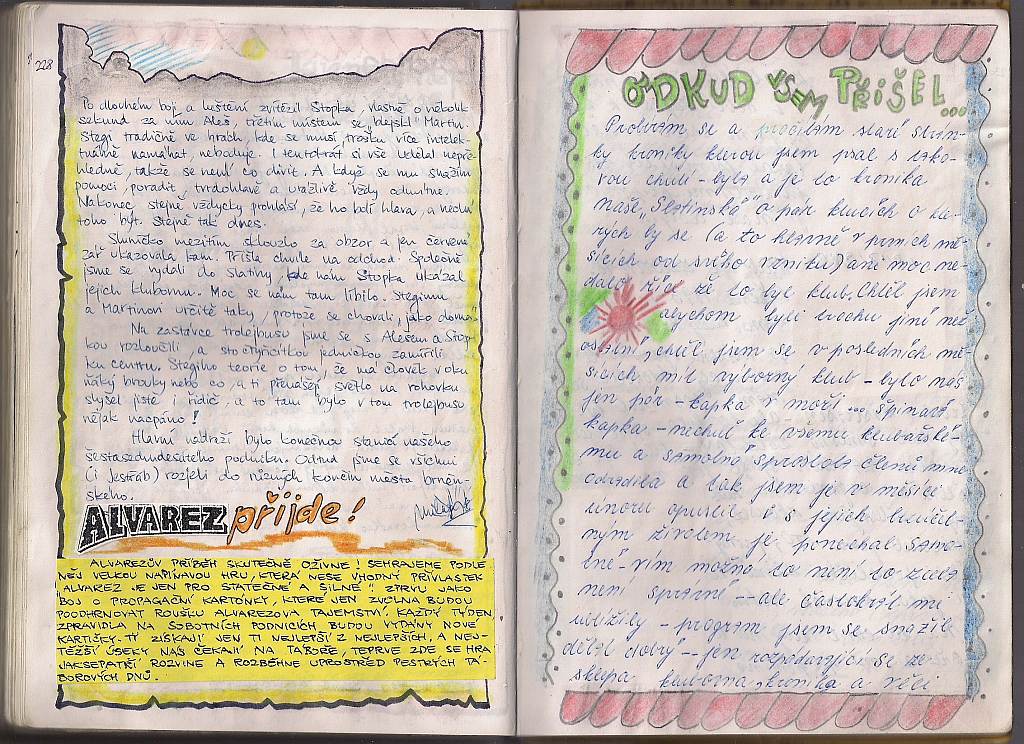 228
Po dlouhém boji a luštění zvítězil Stopka, vlastně o několik
sekund za ním Aleš, třetím místem se blejskl Martin.
Stegi tradičně ve hrách, kde se musí trošku více intelek-
tuálně namáhat, neboduje. I tentokrát si vše udělal nepře-
hledně, takže se není co divit. A když se mu snažím
pomoci, poradit, tvrdohlavě a urážlivě vždy odmítne.
Nakonec stejně vždycky prohlásí, že ho bolí hlava, a nechá
toho být. Stejně tak dnes.
Sluníčko mezitím sklouzlo za obzor a jen červená
zář ukazovala kam. Přišla chvíle na odchod. Společně
jsme se vydali do Slatiny, kde nám Stopka ukázal
jejich klubovnu. Moc se nám tam líbilo. Stegimu
a Martinovi určitě taky, protože se chovali, jako doma.
Na zastávce trolejbusu jsme se s Alešem a Stop-
kou rozloučili, a stočtyřicítkou jedničkou zamířili
ku centru. Stegiho teorie o tom, že má člověk v oku
ňáký brouky nebo co, a ti přenášejí světlo na rohovku
slyšel jistě i řidič, a to tam bylo v tom trolejbusu
nějak nacpáno!
Hlavní nádraží bylo konečnou stanicí našeho
šestasedmdesátého podniku. Odtud jsme se všichni
(i Jestřáb) rozjeli do různých končin města brněn-
ského.
ALVAREZ přijde!
ALVAREZŮV PŘÍBĚH SKUTEČNĚ OŽIVNE! SEHRAJEME PODLE
NĚJ VELKOU NAPÍNAVOU HRU, KTERÁ NESE VHODNÝ PŘÍVLASTEK
"ALVAREZ JE JEN PRO STATEČNÉ A SILNÉ". ZPRVU JAKO
BOJ O PROPAGAČNÍ KARTÓNKY, KTERÉ JEN ZVOLNA BUDOU
POODHRNOVAT ROUŠKU ALVAREZOVA TAJEMSTVÍ. KAŽDÝ TÝDEN
ZPRAVIDLA NA SOBOTNÍCH PODNICÍCH BUDOU VYDÁNY NOVÉ
KARTIČKY. TY ZÍSKAJÍ JEN TI NEJLEPŠÍ Z NEJLEPŠÍCH, A NEJ-
TĚŽŠÍ ÚSEKY NÁS ČEKAJÍ NA TÁBOŘE, TEPRVE ZDE SE HRA
JAKSEPATŘÍ ROZVINE A ROZBĚHNE UPROSTŘED PESTRÝCH TÁ-
BOROVÝCH DNŮ.
ODKUD JSEM PŘIŠEL...
Probírám se a pročítám staré strán-
ky kroniky kterou jsem psal s tako-
vou chutí - byla a je to kronika
naše, "Slatinská" o pár klucích o kte-
rých by se (a to hlavně v prvních mě-
sících od svého vzniku) ani moc ne-
dalo říct že to byl klub. Chtěl jsem
abychom byli trochu jiní než
ostatní, chtěl jsem se v posledních mě-
sících mít výborný klub - bylo nás
jen pár - kapka v moři ... špinavá
kapka - nechuť ke všemu klubařské-
mu a samotná sprostota členů mne
odradila a tak jsem je v měsíci
únoru opustil i s jejich
ným životem je ponechal samo-
tné - vím možná to není to zcela
není správné -- ale častokrát mi
ublížily - program jsem se snažil
dělat dobrý -- jen rozpadávající se ze
sklepa klubovna, kronika a věci